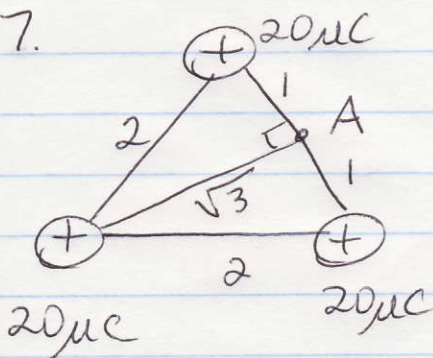 7.
+ 20μC
1
A
2
1
√3
+
+
2
20μC
20μC